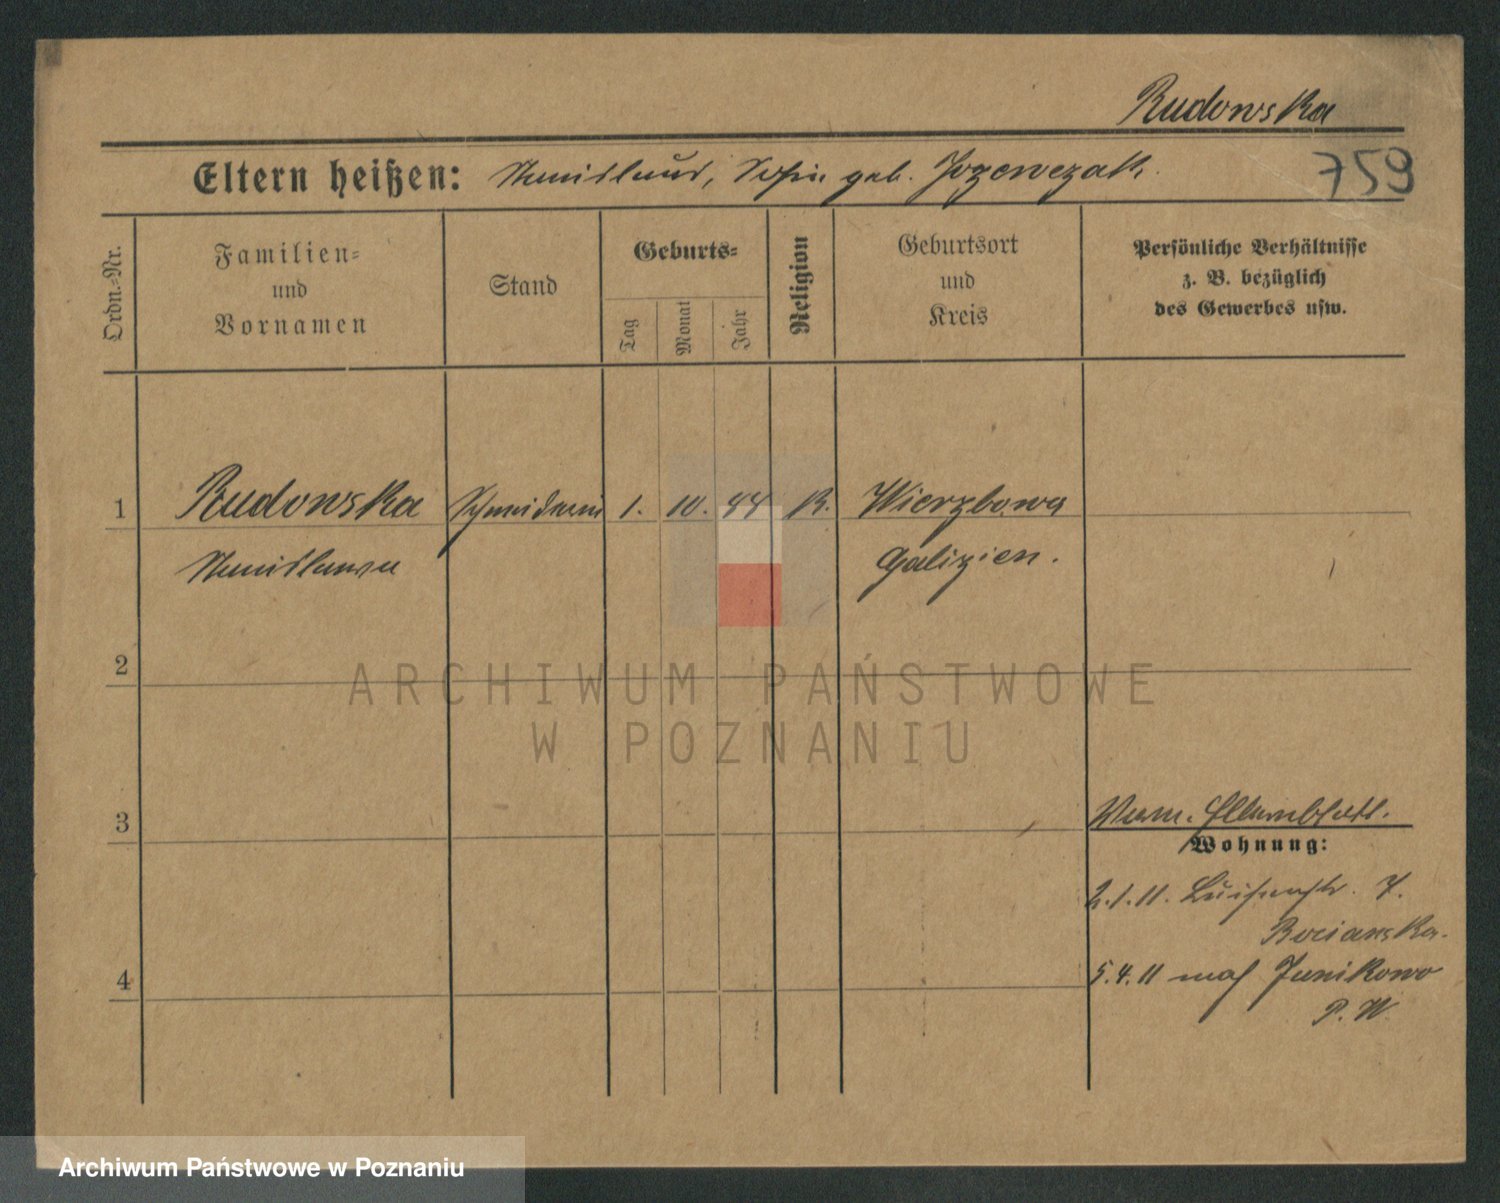 Rudowska
Eltern heißen: Stanislaus, Sofie geb. Jozewczak.
759
Ordn.-Nr.
Familien-
und
Vornamen
Stand
Geburts-
Tag
Monat
Jahr
Religion
Geburtsort
und
Kreis
Persönliche Verhältnisse
z. B. bezüglich
des Gewerbes usw.
1 Rudowska Schneiderin 1. 10. 44 K. Wierzbowa
Stanislawa Galizien.
2
3
Elternblatt.
Wohnung:
2.1.11. Luisenstr. 7.
Bocianska.
4
5.4.11 nach Junikowo
P. W.
ARCHIWUM PAŃSTWOWE
W POZNANIU
Archiwum Państwowe w Poznaniu